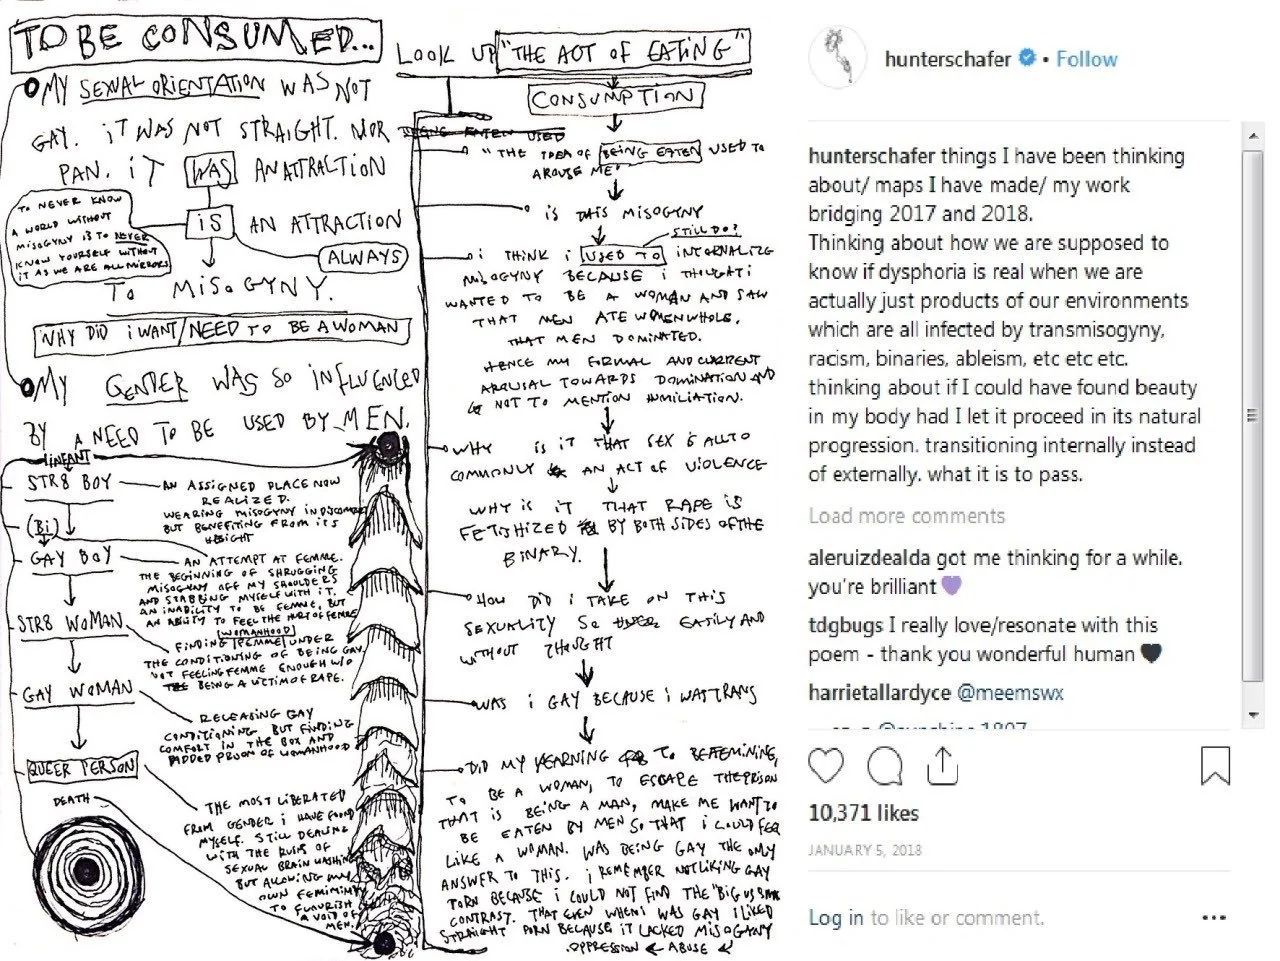 TO BE CONSUMED...
MY SEXUAL ORIENTATION WAS NOT
GAY. IT WAS NOT STRAIGHT. NOR
PAN. IT WAS AN ATTRACTION
IS AN ATTRACTION
ALWAYS
TO MISOGYNY.
TO NEVER KNOW
A WORLD WITHOUT
MISOGYNY IS TO NEVER
KNOW YOURSELF WITHOUT
IT AS WE ARE ALL MIRRORS
WHY DID I WANT/NEED TO BE A WOMAN
MY GENDER WAS SO INFLUENCED
BY A NEED TO BE USED BY MEN.
INFANT
STR8 BOY
AN ASSIGNED PLACE NOW
REALIZED.
WEARING MISOGYNY IN DISCOMFORT
BUT BENEFITING FROM ITS
WEIGHT
(Bi)
GAY BOY
AN ATTEMPT AT FEMME.
THE BEGINNING OF SHRUGGING
MISOGYNY OFF MY SHOULDERS
AND STABBING MYSELF WITH IT.
AN INABILITY TO BE FEMME, BUT
AN ABILITY TO FEEL THE HURT OF FEMME
STR8 WOMAN
WOMANHOOD
FINDING FEMME UNDER
THE CONDITIONING OF BEING GAY.
NOT FEELING FEMME ENOUGH W/O
BEING A VICTIM OF RAPE.
GAY WOMAN
RELEASING GAY
CONDITIONING BUT FINDING
COMFORT IN THE BOX AND
PADDED PROOF OF WOMANHOOD
QUEER PERSON
THE MOST LIBERATED
FROM GENDER I HAVE FOUND
MYSELF. STILL DEALING
WITH THE RUINS OF
SEXUAL BRAIN WASHING
BUT ALLOWING MY
OWN FEMININITY
TO FLOURISH
A VOID OF
MEN.
DEATH
LOOK UP "THE ACT OF EATING"
CONSUMPTION
BEING EATEN USED
"THE IDEA OF BEING EATEN USED TO
AROUSE ME"
IS THIS MISOGYNY
STILL DO?
I THINK I USED TO INTERNALIZE
MISOGYNY BECAUSE I THOUGHT I
WANTED TO BE A WOMAN AND SAW
THAT MEN ATE WOMEN WHOLE.
THAT MEN DOMINATED.
HENCE MY FORMAL AND CURRENT
AROUSAL TOWARDS DOMINATION AND
NOT TO MENTION HUMILIATION.
WHY IS IT THAT SEX IS ALL TO
COMMONLY AN ACT OF VIOLENCE
WHY IS IT THAT RAPE IS
FETISHIZED BY BOTH SIDES OF THE
BINARY.
HOW DID I TAKE ON THIS
SEXUALITY SO EASILY AND
WITHOUT THOUGHT
WAS I GAY BECAUSE I WAS TRANS
DID MY YEARNING TO BE FEMININE,
TO BE A WOMAN, TO ESCAPE THE PRISON
THAT IS BEING A MAN, MAKE ME WANT TO
BE EATEN BY MEN SO THAT I COULD FEEL
LIKE A WOMAN. WAS BEING GAY THE ONLY
ANSWER TO THIS. I REMEMBER NOT LIKING GAY
PORN BECAUSE I COULD NOT FIND THE "BIG VS SMALL
CONTRAST. THAT EVEN WHEN I WAS GAY I LIKED
STRAIGHT PORN BECAUSE IT LACKED MISOGYNY
OPPRESSION ← ABUSE
hunterschafer • Follow
hunterschafer things I have been thinking
about/ maps I have made/ my work
bridging 2017 and 2018.
Thinking about how we are supposed to
know if dysphoria is real when we are
actually just products of our environments
which are all infected by transmisogyny,
racism, binaries, ableism, etc etc etc.
thinking about if I could have found beauty
in my body had I let it proceed in its natural
progression. transitioning internally instead
of externally. what it is to pass.
Load more comments
aleruizdealda got me thinking for a while.
you're brilliant 💜
tdgbugs I really love/resonate with this
poem - thank you wonderful human 🖤
harrietallardyce @meemswx
10,371 likes
JANUARY 5, 2018
Log in to like or comment.